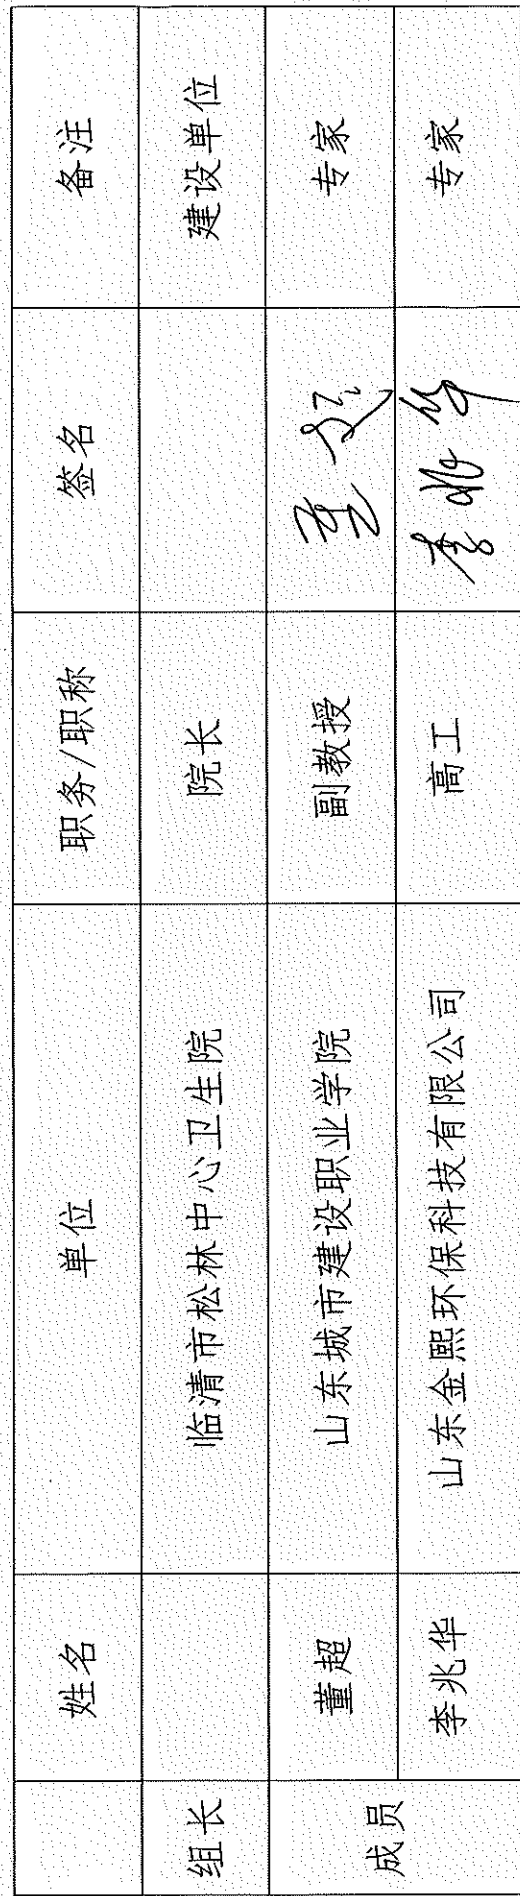 姓名 单位 职务/职称 签名 备注
组长 临清市松林中心卫生院 院长 建设单位
成员 董超 山东城市建设职业学院 副教授 董超 专家
李兆华 山东金熙环保科技有限公司 高工 李兆华 专家